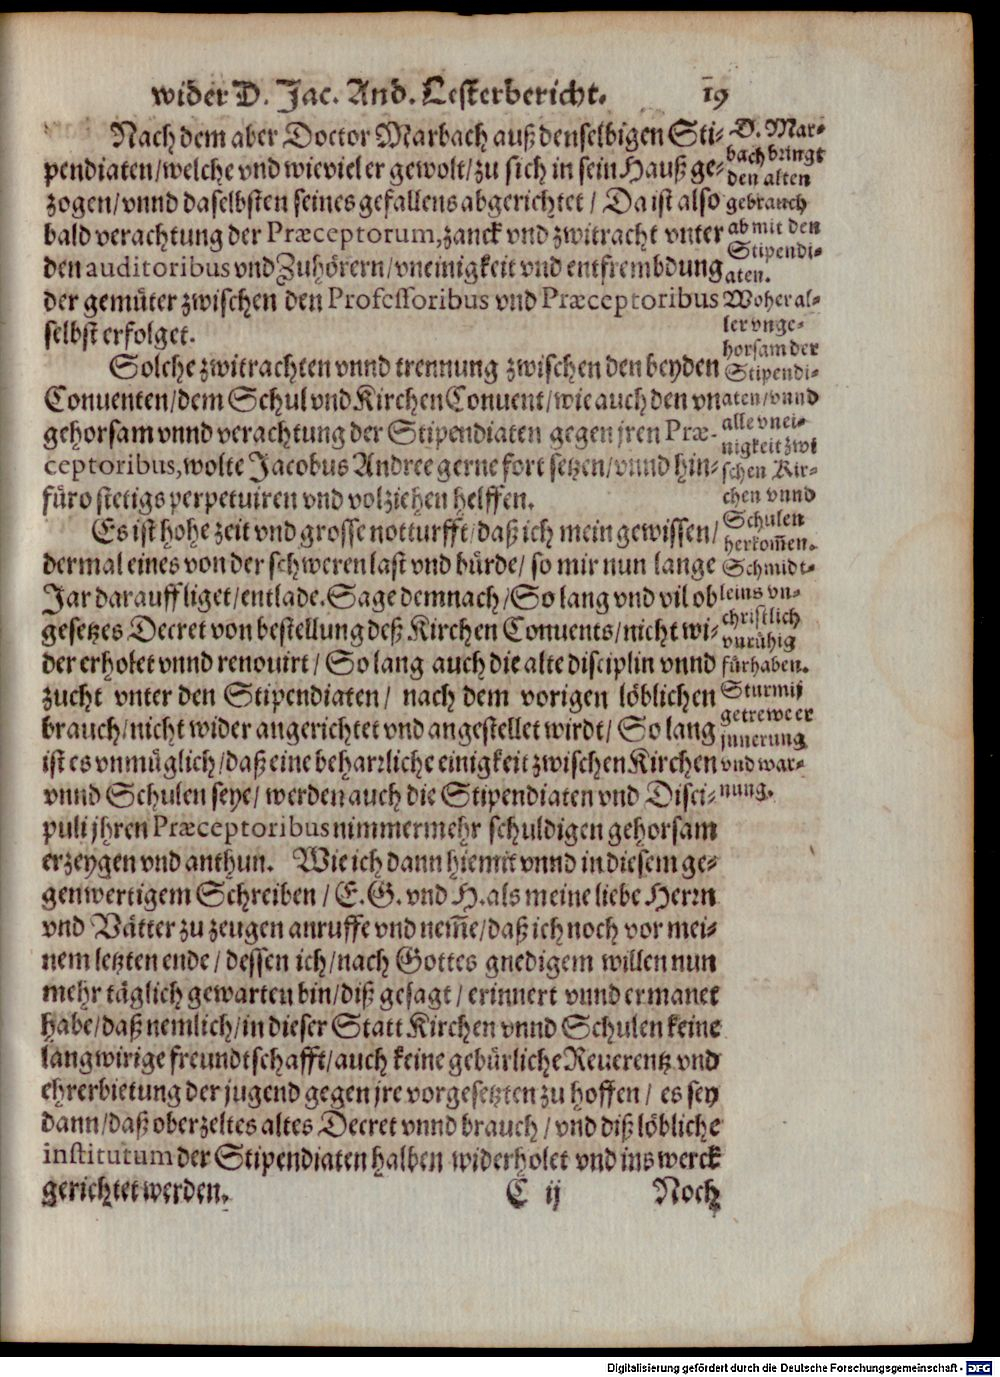 wider D. Jac. And. Lesterbericht. 19
Nach dem aber Doctor Marbach auß denselbigen Sti-
pendiaten/welche vnd wieviel er gewolt/zu sich in sein Hauß ge-
zogen/vnnd daselbsten seines gefallens abgerichtet/ Da ist also
bald verachtung der Præceptorum, zanck vnd zwitracht vnter
den auditoribus vnd Zuhörern/vneinigkeit vnd entfrembdung
der gemüter zwischen den Professoribus vnd Præceptoribus
selbst erfolget.
Solche zwitrachten vnnd trennung zwischen den beyden
Conuenten/dem Schul vnd Kirchen Conuent/wie auch den vn-
gehorsam vnnd verachtung der Stipendiaten gegen jren Præ-
ceptoribus, wolte Jacobus Andree gerne fort setzen/vnnd hin-
füro stetigs perpetuiren vnd volziehen helffen.
Es ist hohe zeit vnd grosse notturfft/daß ich mein gewissen/
dermal eines von der schweren last vnd bürde/ so mir nun lange
Jar darauff liget/entlade. Sage demnach/So lang vnd vil ob
gesetzes Decret von bestellung deß Kirchen Conuents/nicht wi-
der erholet vnnd renouirt/ So lang auch die alte disciplin vnnd
zucht vnter den Stipendiaten/ nach dem vorigen löblichen
brauch/nicht wider angerichtet vnd angestellet wirdt/ So lang
ist es vnmüglich/daß eine beharrliche einigkeit zwischen Kirchen
vnnd Schulen seye/ werden auch die Stipendiaten vnd Disci-
puli jhren Præceptoribus nimmermehr schuldigen gehorsam
erzeygen vnd anthun. Wie ich dann hiemit vnnd in diesem ge-
genwertigem Schreiben/ E. G. vnd H. als meine liebe Herrn
vnd Vätter zu zeugen anruffe vnd nem̃e/daß ich noch vor mei-
nem letzten ende/ dessen ich/nach Gottes gnedigem willen nun
mehr täglich gewarten bin/diß gesagt/ erinnert vnnd ermanet
habe/daß nemlich/in dieser Statt Kirchen vnnd Schulen keine
langwirige freundtschafft/auch keine gebürliche Reuerentz vnd
ehrerbietung der jugend gegen jre vorgesetzten zu hoffen/ es sey
dann/daß oberzeltes altes Decret vnnd brauch/ vnd diß löbliche
institutum der Stipendiaten halben widerholet vnd ins werck
gerichtet werden.
C ij Noch
D. Mar-
bach bringt
den alten
gebrauch
ab mit den
Stipendi-
aten.
Woher al-
ler vnge-
horsam der
Stipendi-
aten/vnnd
alle vnei-
nigkeit zwi
schen Kir-
chen vnnd
Schulen
herkom̃en.
Schmidt-
leins vn-
christlich
vnrühig
fürhaben.
Sturmij
getrewe er
innerung
vnd war-
nung.
Digitalisierung gefördert durch die Deutsche Forschungsgemeinschaft - DFG